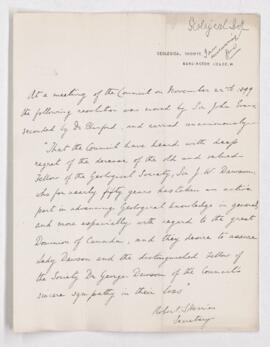 Geological Soc
GEOLOGICAL SOCIETY
BURLINGTON HOUSE, W.
At a meeting of the Council on November 22nd 1899
the following resolution was moved by Sir John Evans
seconded by Dr Blanford, and carried unanimously:-
"That the Council have heard with deep
regret of the decease of the old and valued
Fellow of the Geological Society, Sir J. W. Dawson,
who for nearly fifty years has taken an active
part in advancing Geological knowledge in general,
and more especially with regard to the great
Dominion of Canada, and they desire to assure
Lady Dawson and the distinguished Fellow of
the Society Dr George Dawson of the Council's
sincere sympathy in their loss"
Robert S Herries
Secretary